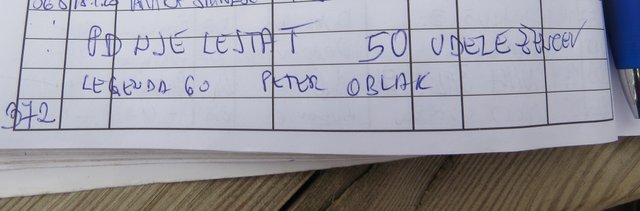 PD NJE LESTAT 50 UDELEŽENCEV
LEGENDA 60 PETER OBLAK
372